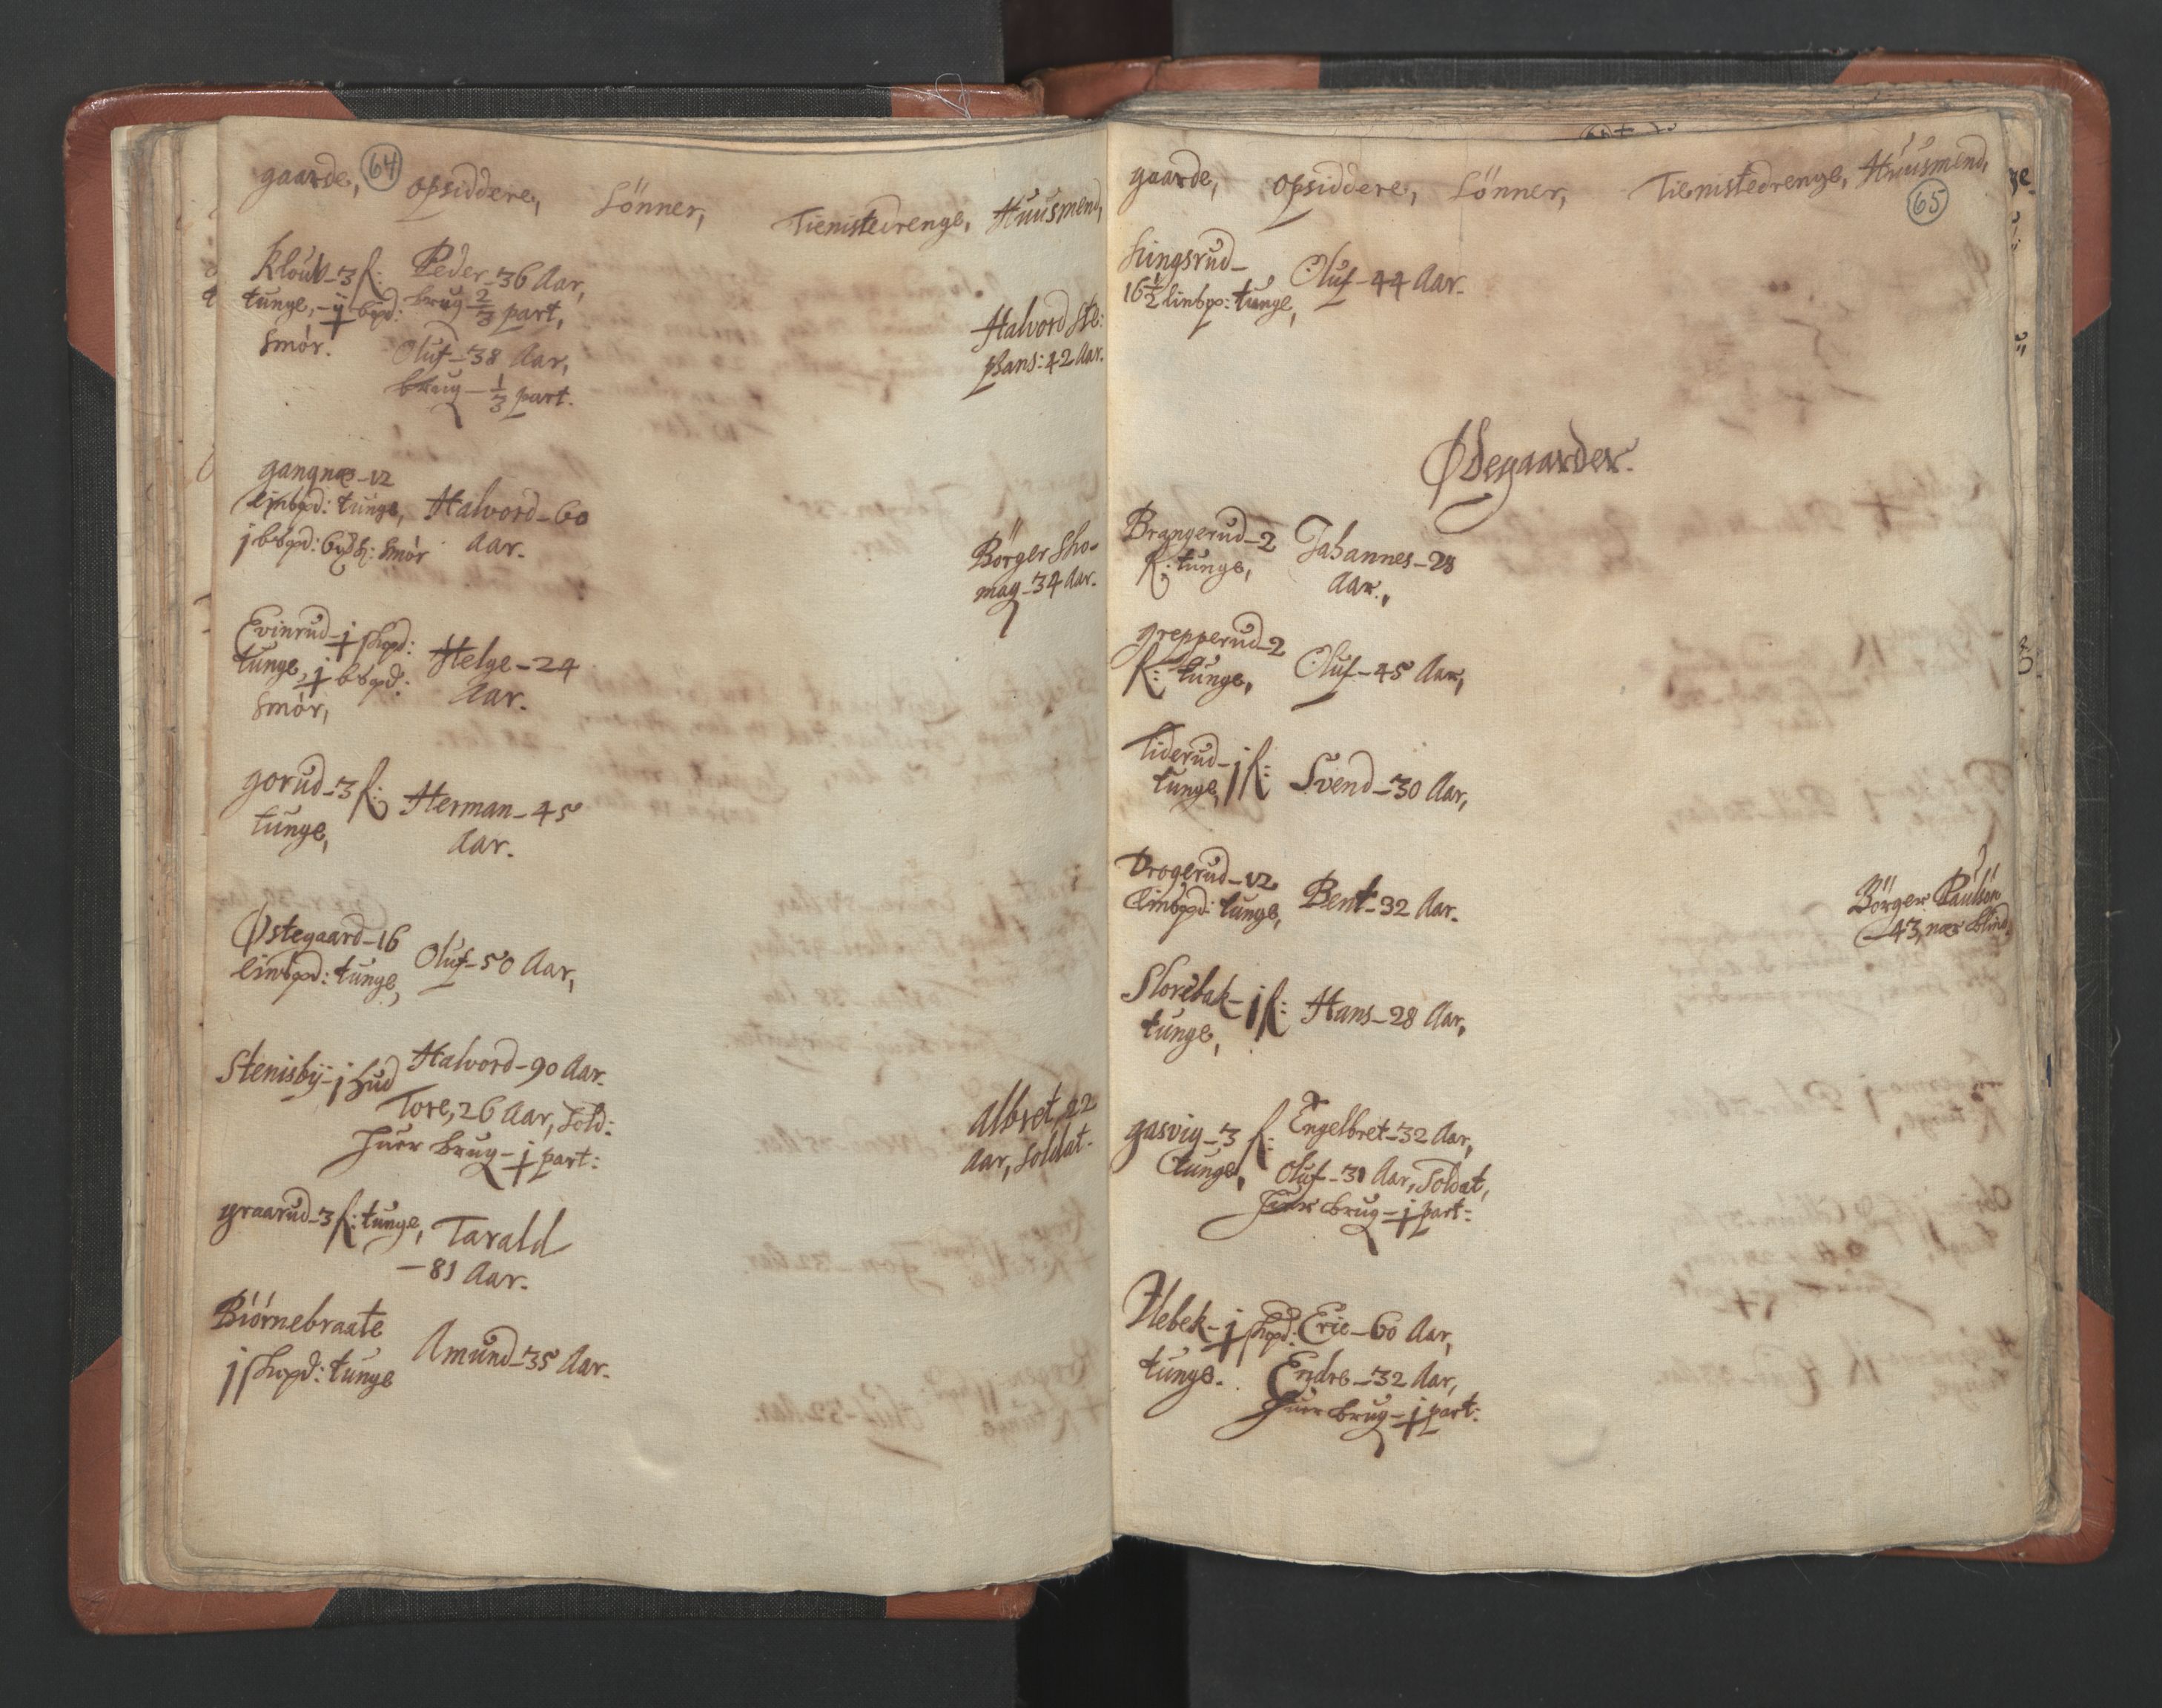 gaarde, 64 opsiddere, Sönner, Tienistedrenge, Huusmend,
Klouk-3 f: Peder-36 Aar,
tunge, - ij bpd: brug 2/3 part,
Smör. Oluf-38 Aar,
brug - 1/3 part.
Halvord Ste:
phans: 42 Aar.
gangnæ-12
linspd: tunge, Halvord-60
j bspd: 6 Smör Aar.
Börger Sko-
mag-34 Aar.
Evinrud-j skpd: Helge-24
tunge, j bspd: Aar.
Smör,
gorud-3 f: Herman-45
tunge, Aar.
Østegaard-16
linspd: tunge, Oluf-50 Aar,
Stenisby-j Hud Halvord-90 Aar.
Tore, 26 Aar, Sold:
huer brug-j part:
Albret, 22
Aar, Soldat.
graarud-3 f: tunge, Tarald
-81 Aar.
Biörnebraate
j skpd: tunge Amund-35 Aar.
gaarde, opsiddere, Sönner, Tienistedrenge, Huusmend,
65
Kingsrud-
16 1/2 linspd: tunge, Oluf-44 Aar.
Ødegaarder.
Brangerud-2 Johannes-28
f: tunge, Aar.,
grepperud-2
f: tunge, Oluf-45 Aar,
Tiderud-j f: Svend-30 Aar,
tunge,
Drogerud-12
linspd: tunge, Bent-32 Aar.
Börger Paulsön
-43, nær blind.
Slorebak-j f: Hans-28 Aar,
tunge,
gasvig-3 f: Engelbret-32 Aar,
tunge, Oluf-31 Aar, Soldat,
huer brug-j part:
Ulebek-j skpd: Eric-60 Aar,
tunge. Endre-32 Aar,
huer brug-j part: